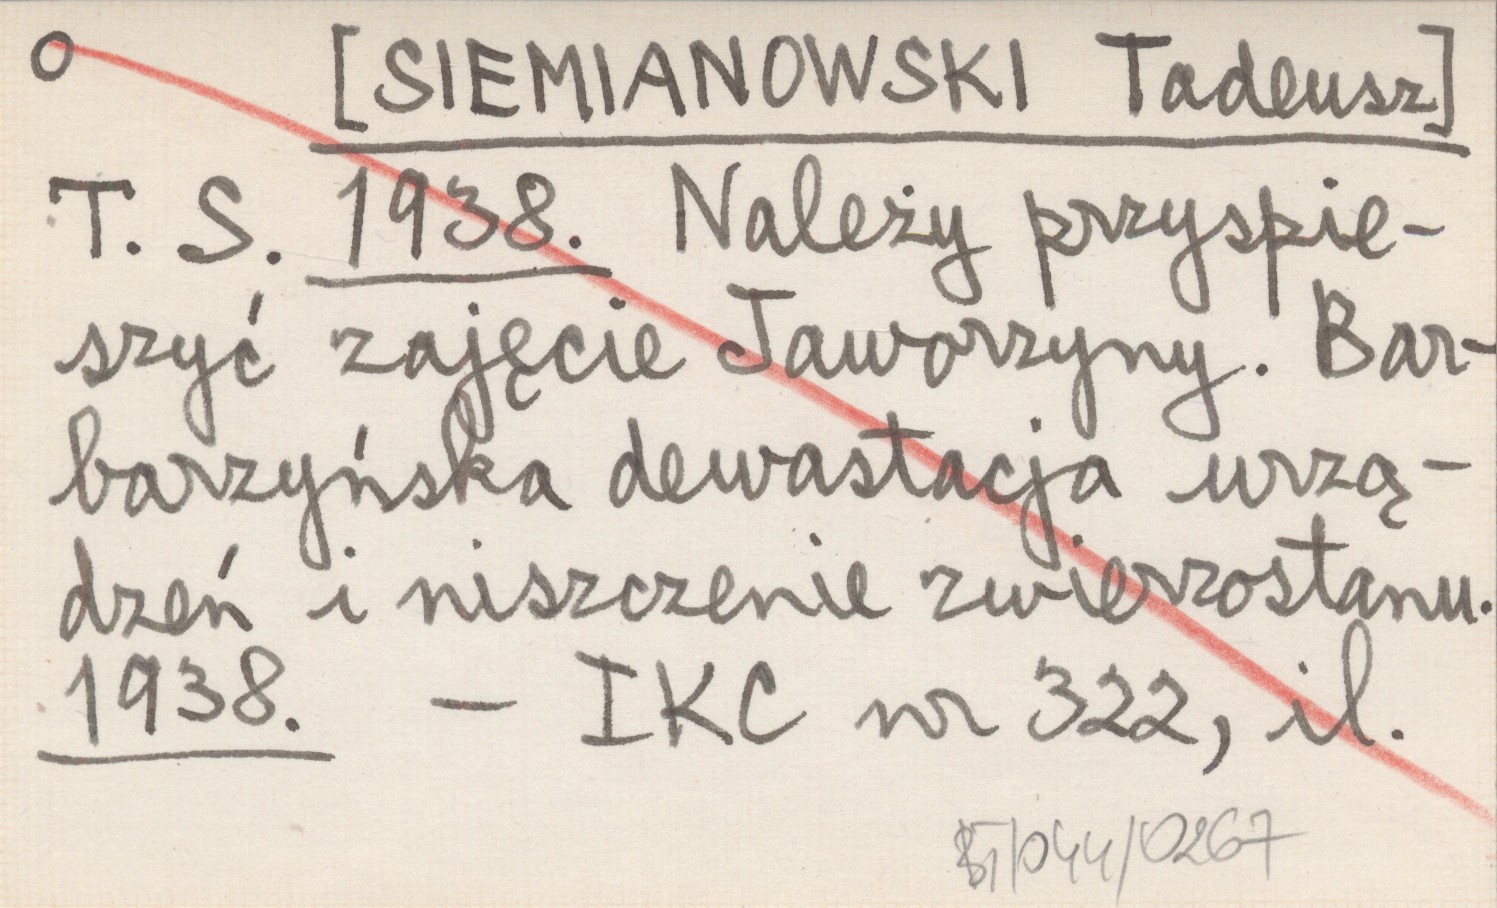 O [SIEMIANOWSKI Tadeusz]
T. S. 1938. Należy przyspie-
szyć zajęcie Jaworzyny. Bar-
barzyńska dewastacja urzą-
dzeń i niszczenie zwierzostanu.
1938. — IKC nr 322, il.
/044/0267